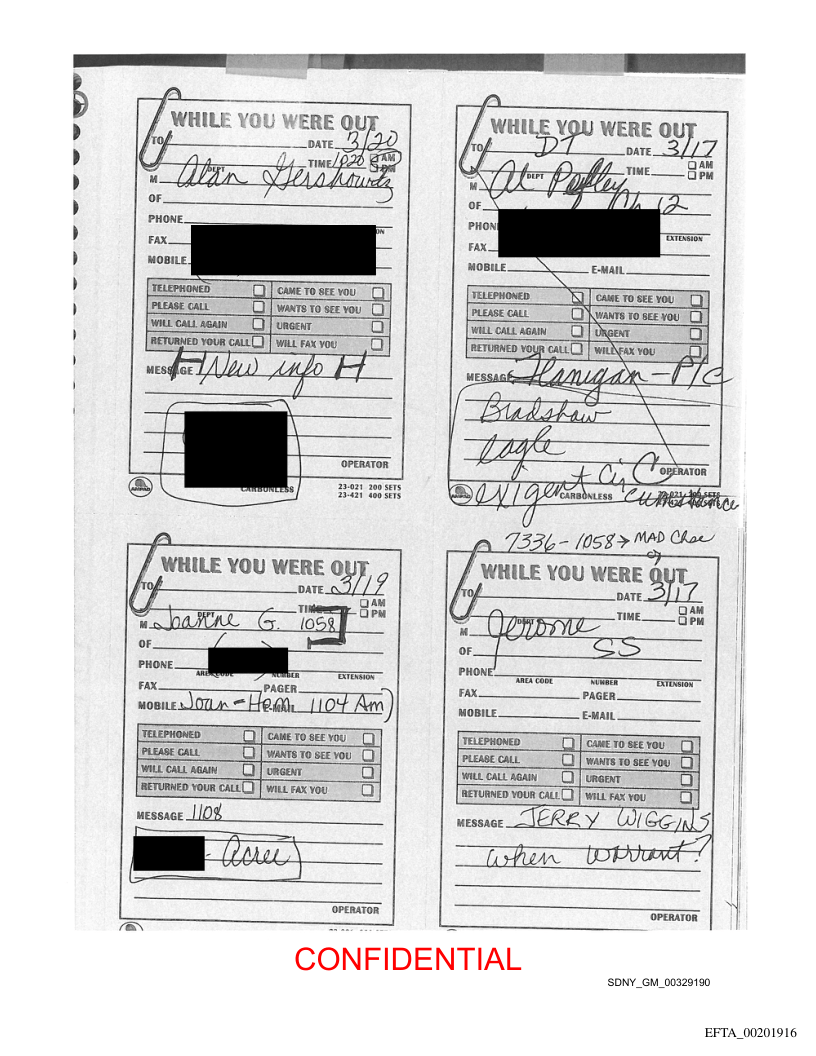 WHILE YOU WERE OUT
TO DATE 3/20
DEPT TIME 1020 AM PM
M Alan Gershowitz
OF
PHONE
FAX
MOBILE
TELEPHONED CAME TO SEE YOU
PLEASE CALL WANTS TO SEE YOU
WILL CALL AGAIN URGENT
RETURNED YOUR CALL WILL FAX YOU
MESSAGE New info
OPERATOR
23-021 200 SETS
CARBONLESS 23-421 400 SETS
AMPAD
WHILE YOU WERE OUT
TO DT DATE 3/17
DEPT TIME AM PM
M Al
OF Ch 12
PHON
FAX EXTENSION
MOBILE E-MAIL
TELEPHONED CAME TO SEE YOU
PLEASE CALL WANTS TO SEE YOU
WILL CALL AGAIN URGENT
RETURNED YOUR CALL WILL FAX YOU
MESSAGE Flanigan - P/C
Bradshaw
eagle
OPERATOR
exigent Circumstance
CARBONLESS
WHILE YOU WERE OUT
TO DATE 3/19
DEPT TIME AM PM
M Joanne G. 1058
OF
PHONE
AREA CODE NUMBER EXTENSION
FAX PAGER
MOBILE Joan - Hom 1104 Am)
E-MAIL
TELEPHONED CAME TO SEE YOU
PLEASE CALL WANTS TO SEE YOU
WILL CALL AGAIN URGENT
RETURNED YOUR CALL WILL FAX YOU
MESSAGE 1108
- Acree
OPERATOR
7336-1058 → MAD Chse
WHILE YOU WERE OUT
TO DATE 3/17
DEPT TIME AM PM
M Jerome
OF SS
PHONE
AREA CODE NUMBER EXTENSION
FAX PAGER
MOBILE E-MAIL
TELEPHONED CAME TO SEE YOU
PLEASE CALL WANTS TO SEE YOU
WILL CALL AGAIN URGENT
RETURNED YOUR CALL WILL FAX YOU
MESSAGE JERRY WIGGINS
when warrant?
OPERATOR
CONFIDENTIAL
SDNY_GM_00329190
EFTA_00201916